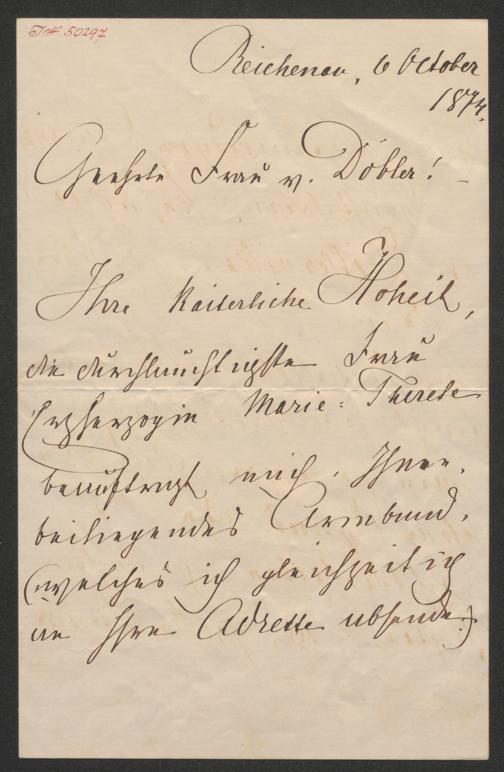 I.N. 50297
Reichenau, 6 October
1874.
Geehrte Frau v. Döbler! –
Ihre Kaiserliche Hoheit,
die durchlauchtigste Frau
Erzherzogin Marie=Therese
beauftragt mich, Ihnen,
beiliegendes Armband,
(welches ich gleichzeitig
an Ihre Adresse absende)